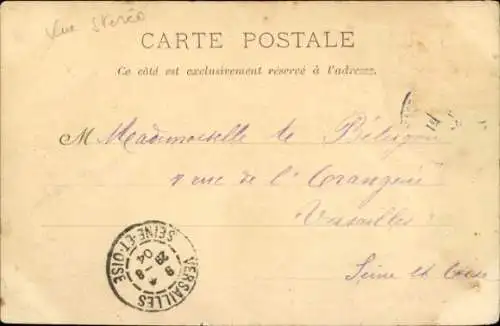 Vue Stéréo
CARTE POSTALE
Ce côté est exclusivement réservé à l'adresse.
M Mademoiselle de
rue de l'Orangerie
Versailles
Seine et Oise
VERSAILLES
SEINE-ET-OISE
29
04